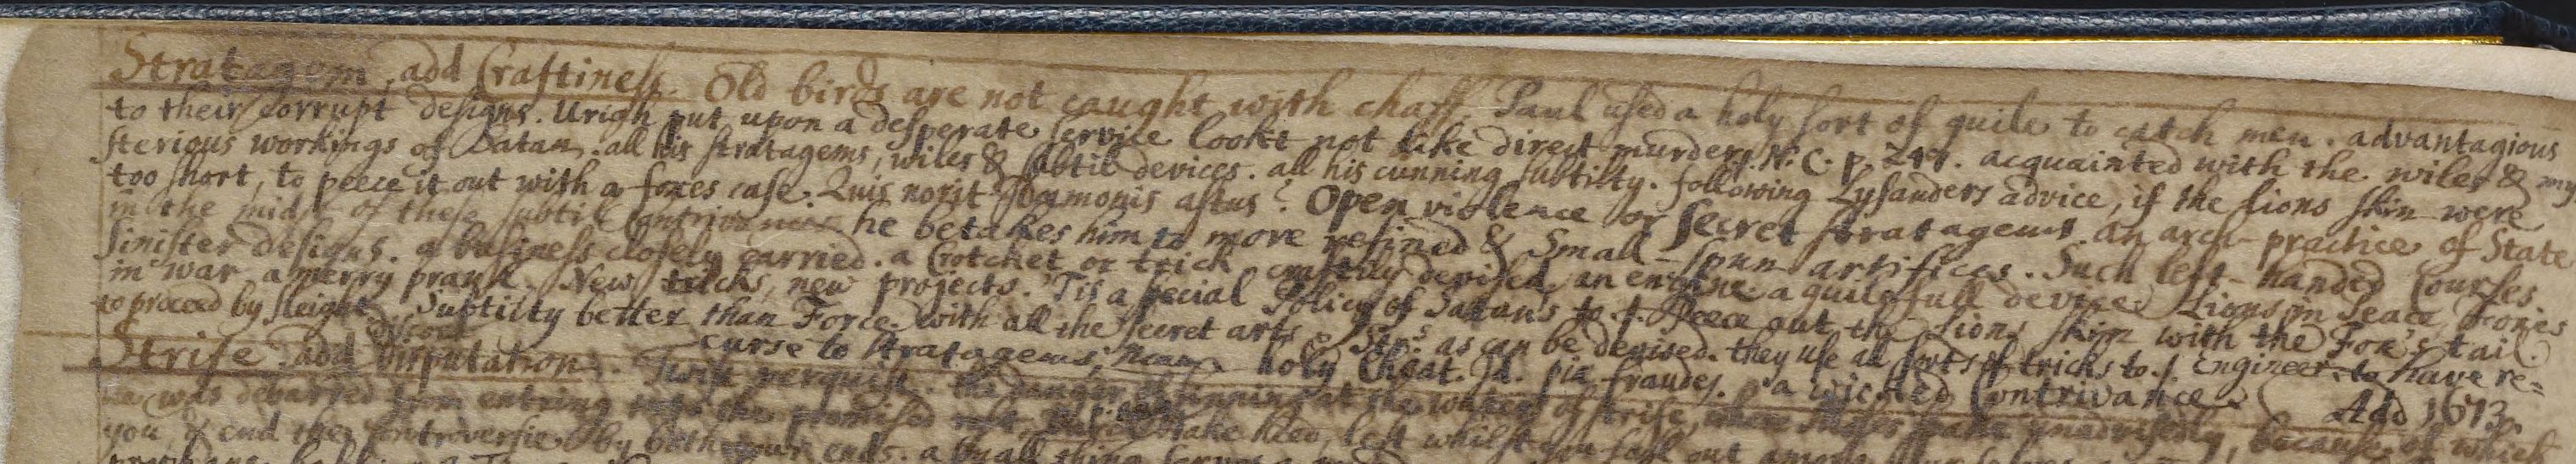 Stratagem. add Craftiness. Old birds are not caught with chaff. Paul used a holy sort of guile to catch men. advantagious
to their corrupt designs. Uriah put upon a desperate service lookt not like direct murder. N. C. p. acquainted with the wiles & my
sterious workings of Satan. all his stratagems, wiles & subtil devices. all his cunning subtilty. following Lysanders advice, if the lions skin were
too short, to peece it out with a foxes case. Quis novit astus? Open violence or secret stratagems. an arch-practice of State
in the midst of these subtil contrivances he betakes him to more refined & small-spun artifices. Such left-handed courses.
sinister designs. a business closely carried. a Crotchet or trick craftily devised. an engine. a guilefull device. Lions in Peace, Foxes
in war. a merry prank. New tricks, new projects. 'Tis a special Policy of Satan's to peece out the Lions skin with the Fox's tail.
to proceed by sleight. Subtilty better than Force. with all the secret arts as can be devised. they use all sorts of tricks to Engineer. to have re=
curse to stratagems. holy Cheat. piæ fraudes. a wicked Contrivance. Add 1673.
Strife. add Disputation. at the waters of strife, because of which
he was debarred from entring into the promised rest. take heed, lest whilst you fall out among
you, & end the controversie by both your ends. a small thing serves